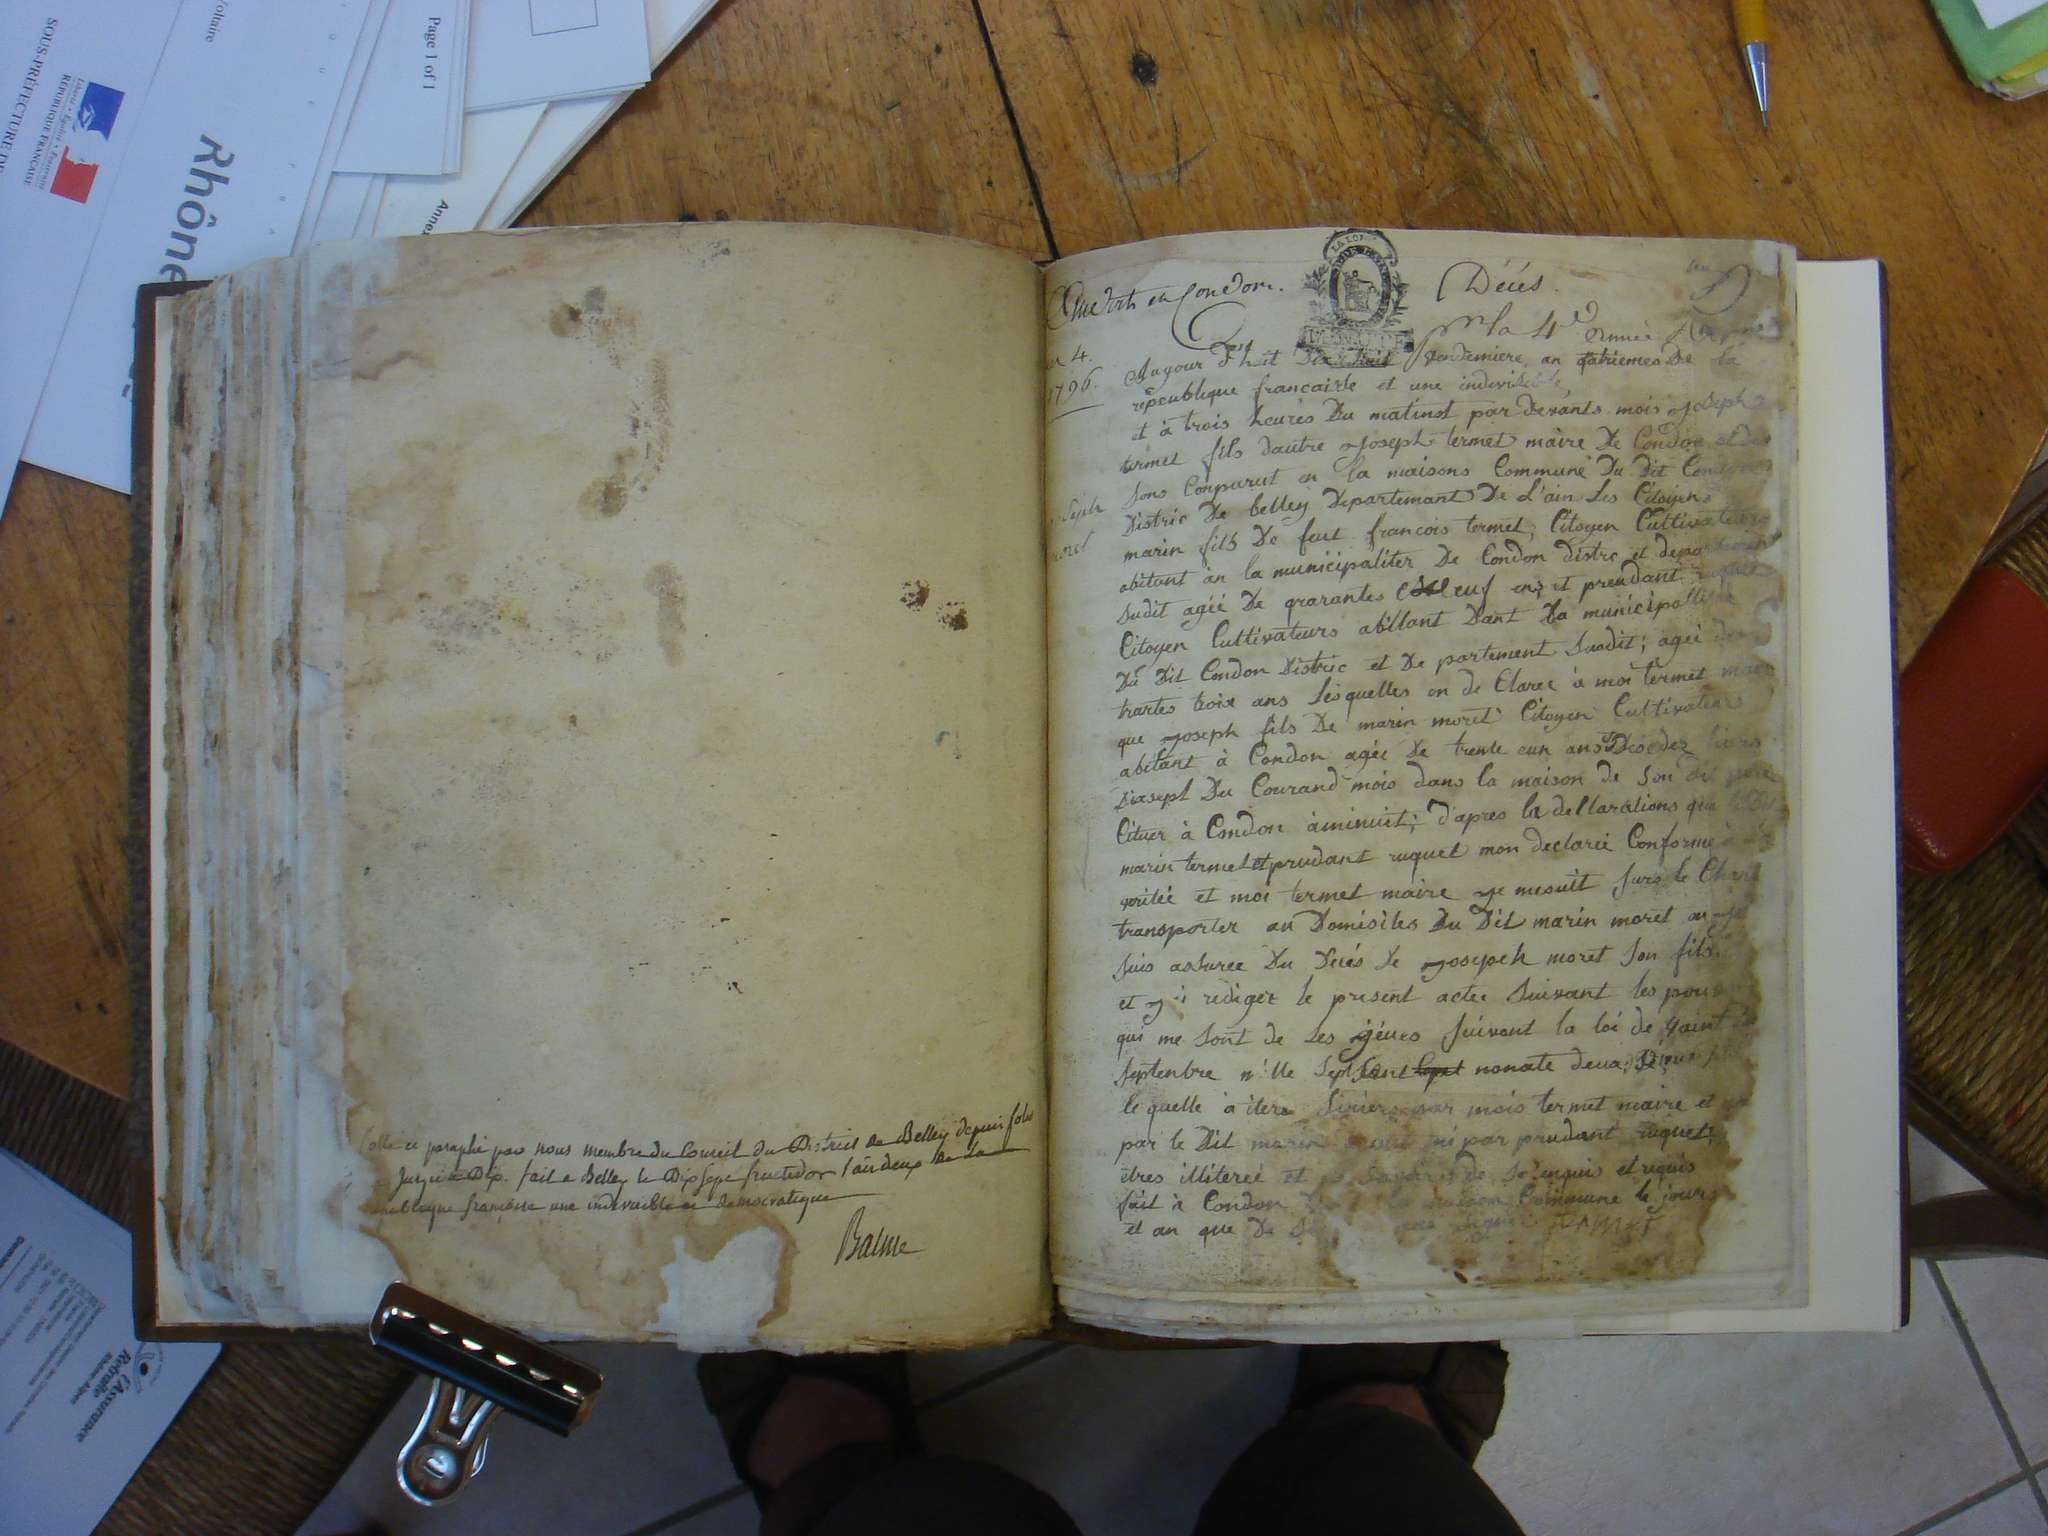 SOUS-PRÉFECTURE DE
Liberté • Égalité • Fraternité
RÉPUBLIQUE FRANÇAISE
Voltaire
Rhône
Page 1 of 1
Annex
l'Assurance
Retraite
cotté et paraphé par nous membre du Conseil du District de Belley depuis folio
Jusqu'a Dix. fait a Belley le Dix Sept fructidor l'an deux de la
republique françoise une indivisible et democratique
Balme
en Condon.
Décés.
la 4e Année
an 4.
1796.
Joseph
moret
Aujour d'huit Dix huit Vendemiere an qatriemes De la
republique francaisse et une indivisible
et à trois heures Du matinst par devants mois Joseph
termet fils dautre Joseph termet maire De Condon et des
sons Conparut en la maisons Commune Du dit Condon
District De belley Departemant De L'ain Les Citoyens
marin fils De feut francois termet, Citoyen Cultivateurs
abitant an la municipaliter De Condon distrc et departement
sudit agéé De qrarantes neuf ens et prendant ruquet
Citoyen Cultivateurs abittant Dant La municipallite
Du Dit Condon District et De partement Sudit; agéé de
trantes troix ans Lesquelles on de Claree à moi termet maire
que Joseph fils De marin moret Citoyen Cultivateurs
abitant à Condon agéé De trente eun ans Desedez hiers
Diasept Du Courand mois dans la maison de Son dit pere
Cituer à Condon àminuit; d'apres la dellarations que
marin termet et prudant ruquet mon declareé Conforme à la
veritéé et moi termet maire je mesuit surs le Champ
transporter au Domisiles Du Dit marin moret ou je
suis assuree Du Décés De Josepeh moret Son fils
et j'ai rediger le present actee suivant les pouv
qui me sont de Les géues suivant la loi de vaint
septenbre mille Sept sant nonate deux
le quelle à iters par mois termet maire et
par le Dit marin ni par prudant ruquet
etres illitereé et de se enquis et requis
fait à Condon maison Commune le jours
et an que De termet